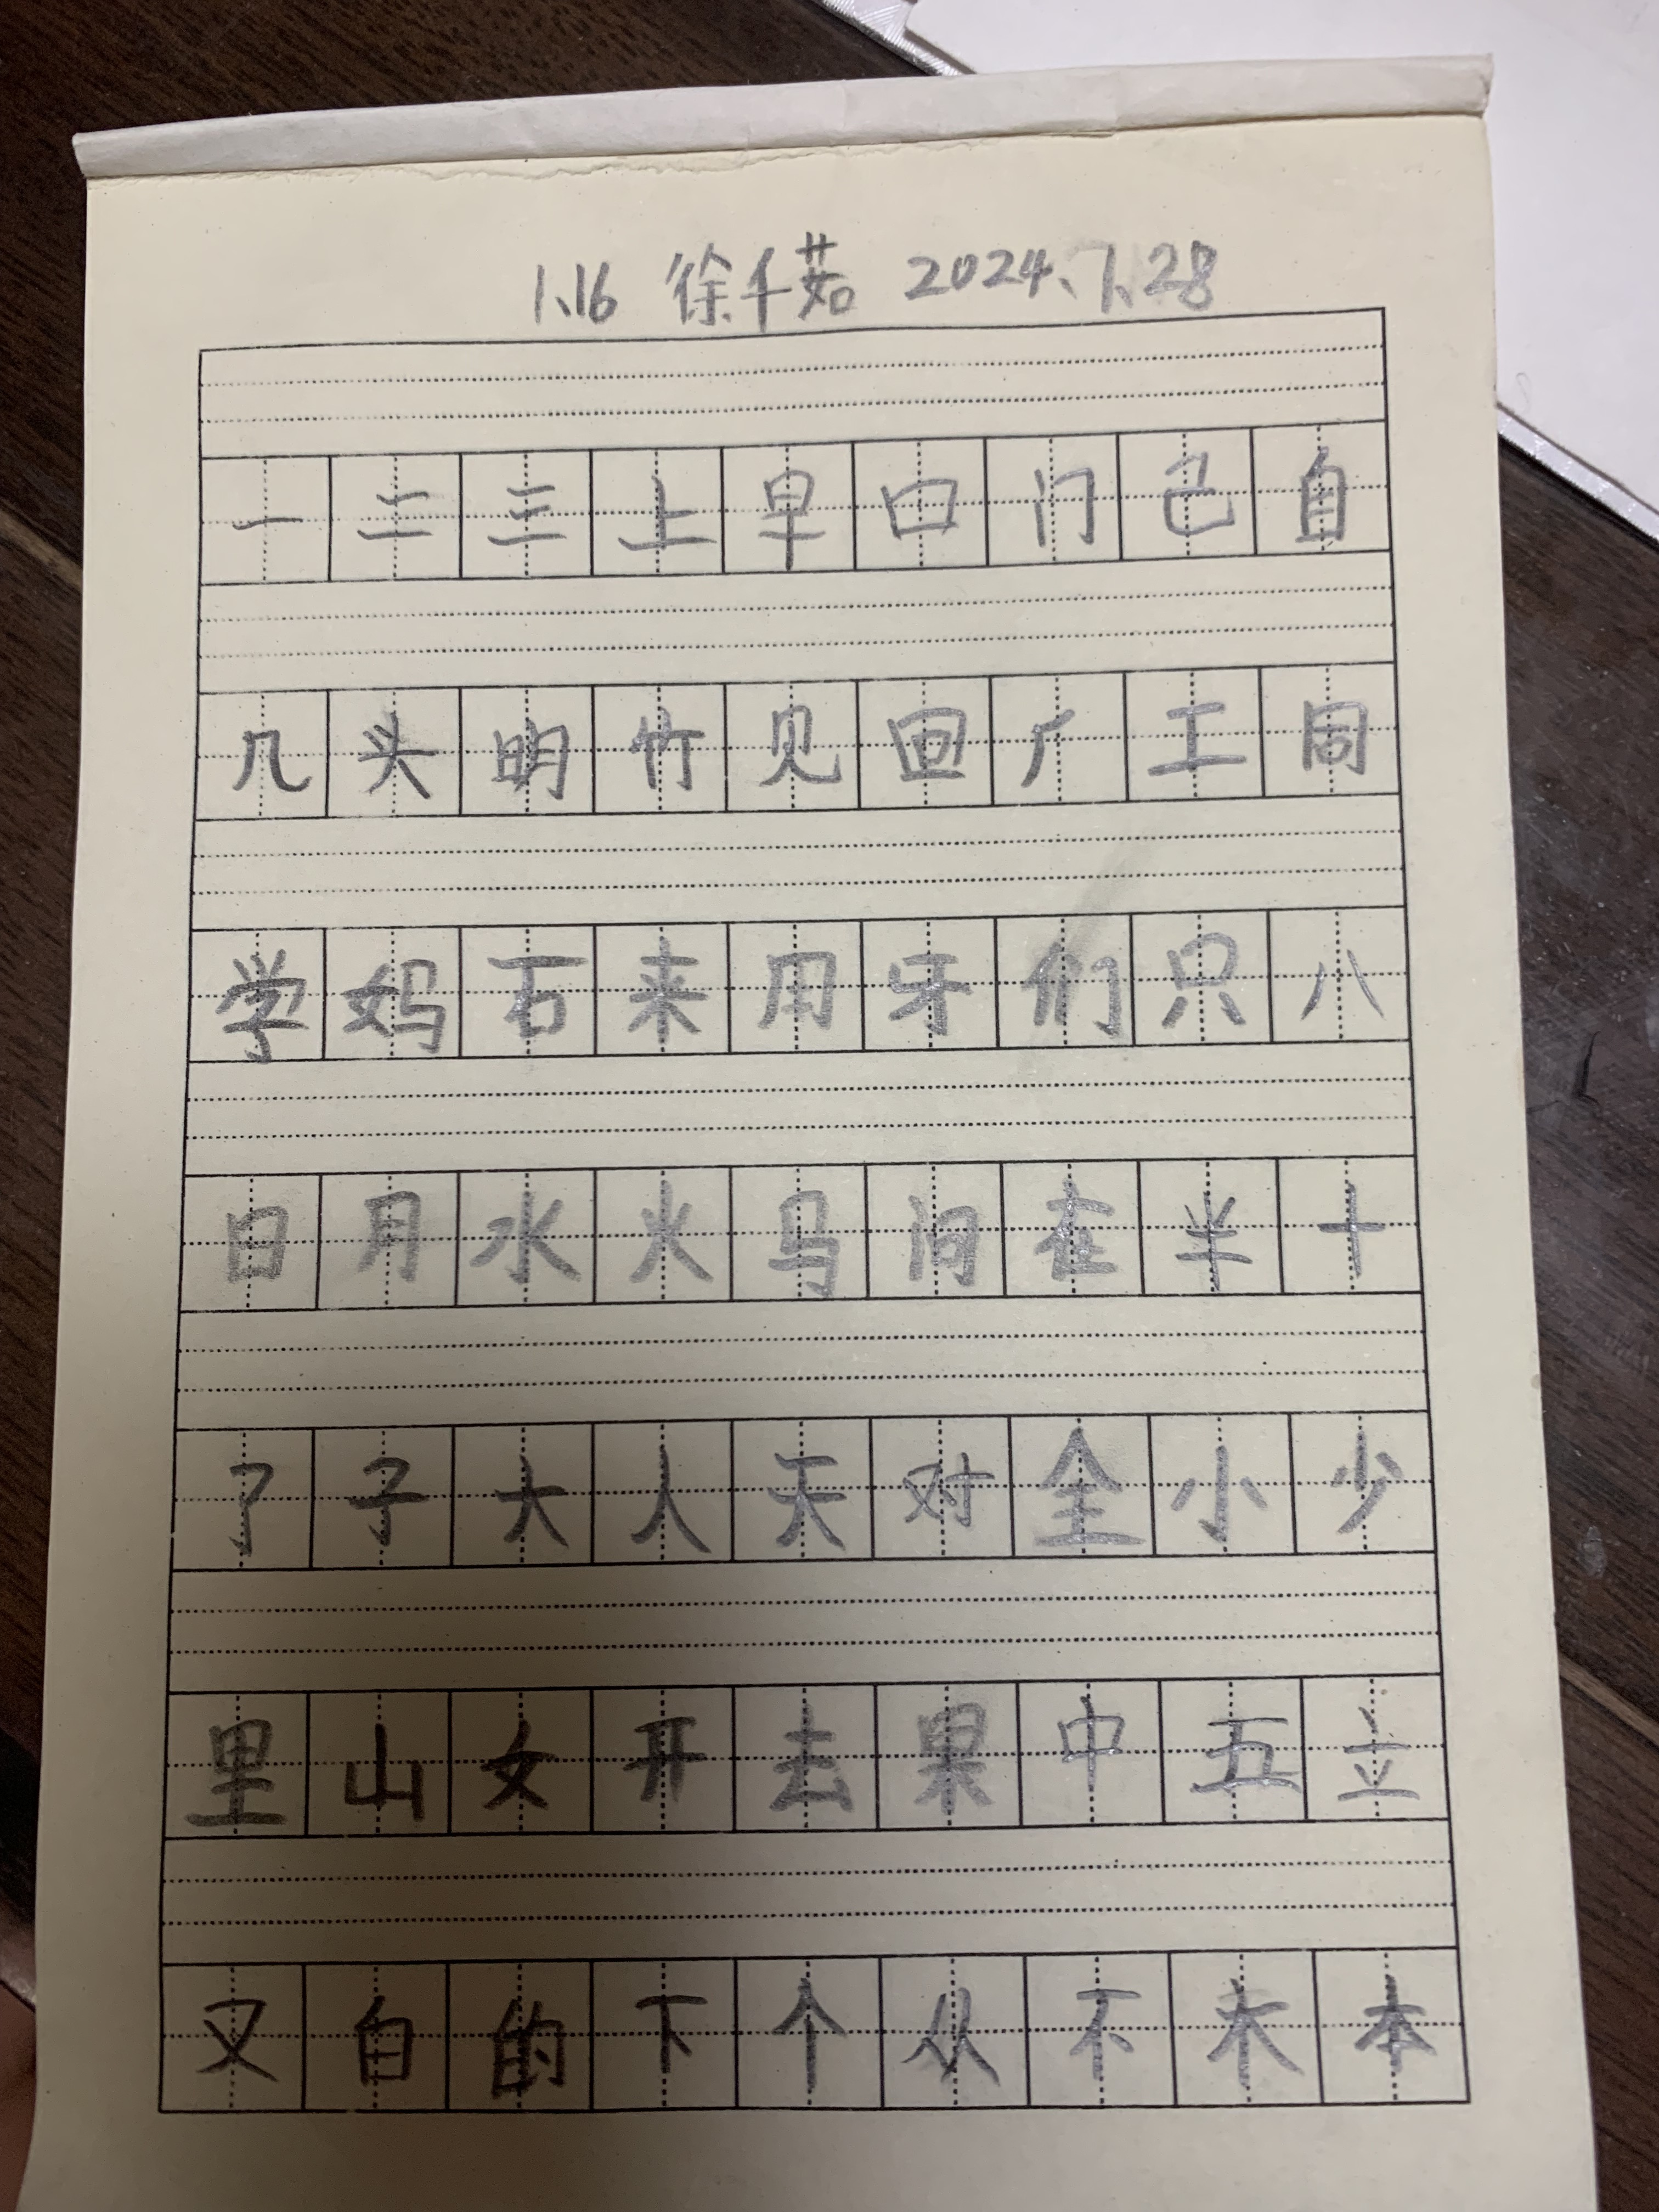 1.16 徐千茹 2024.7.28
一二三上早口门己自
几头明竹见回厂工同
学妈石来用牙们只八
日月水火马间在半十
了子大人天对全小少
里山女开去果中五立
又白的下个从不木本